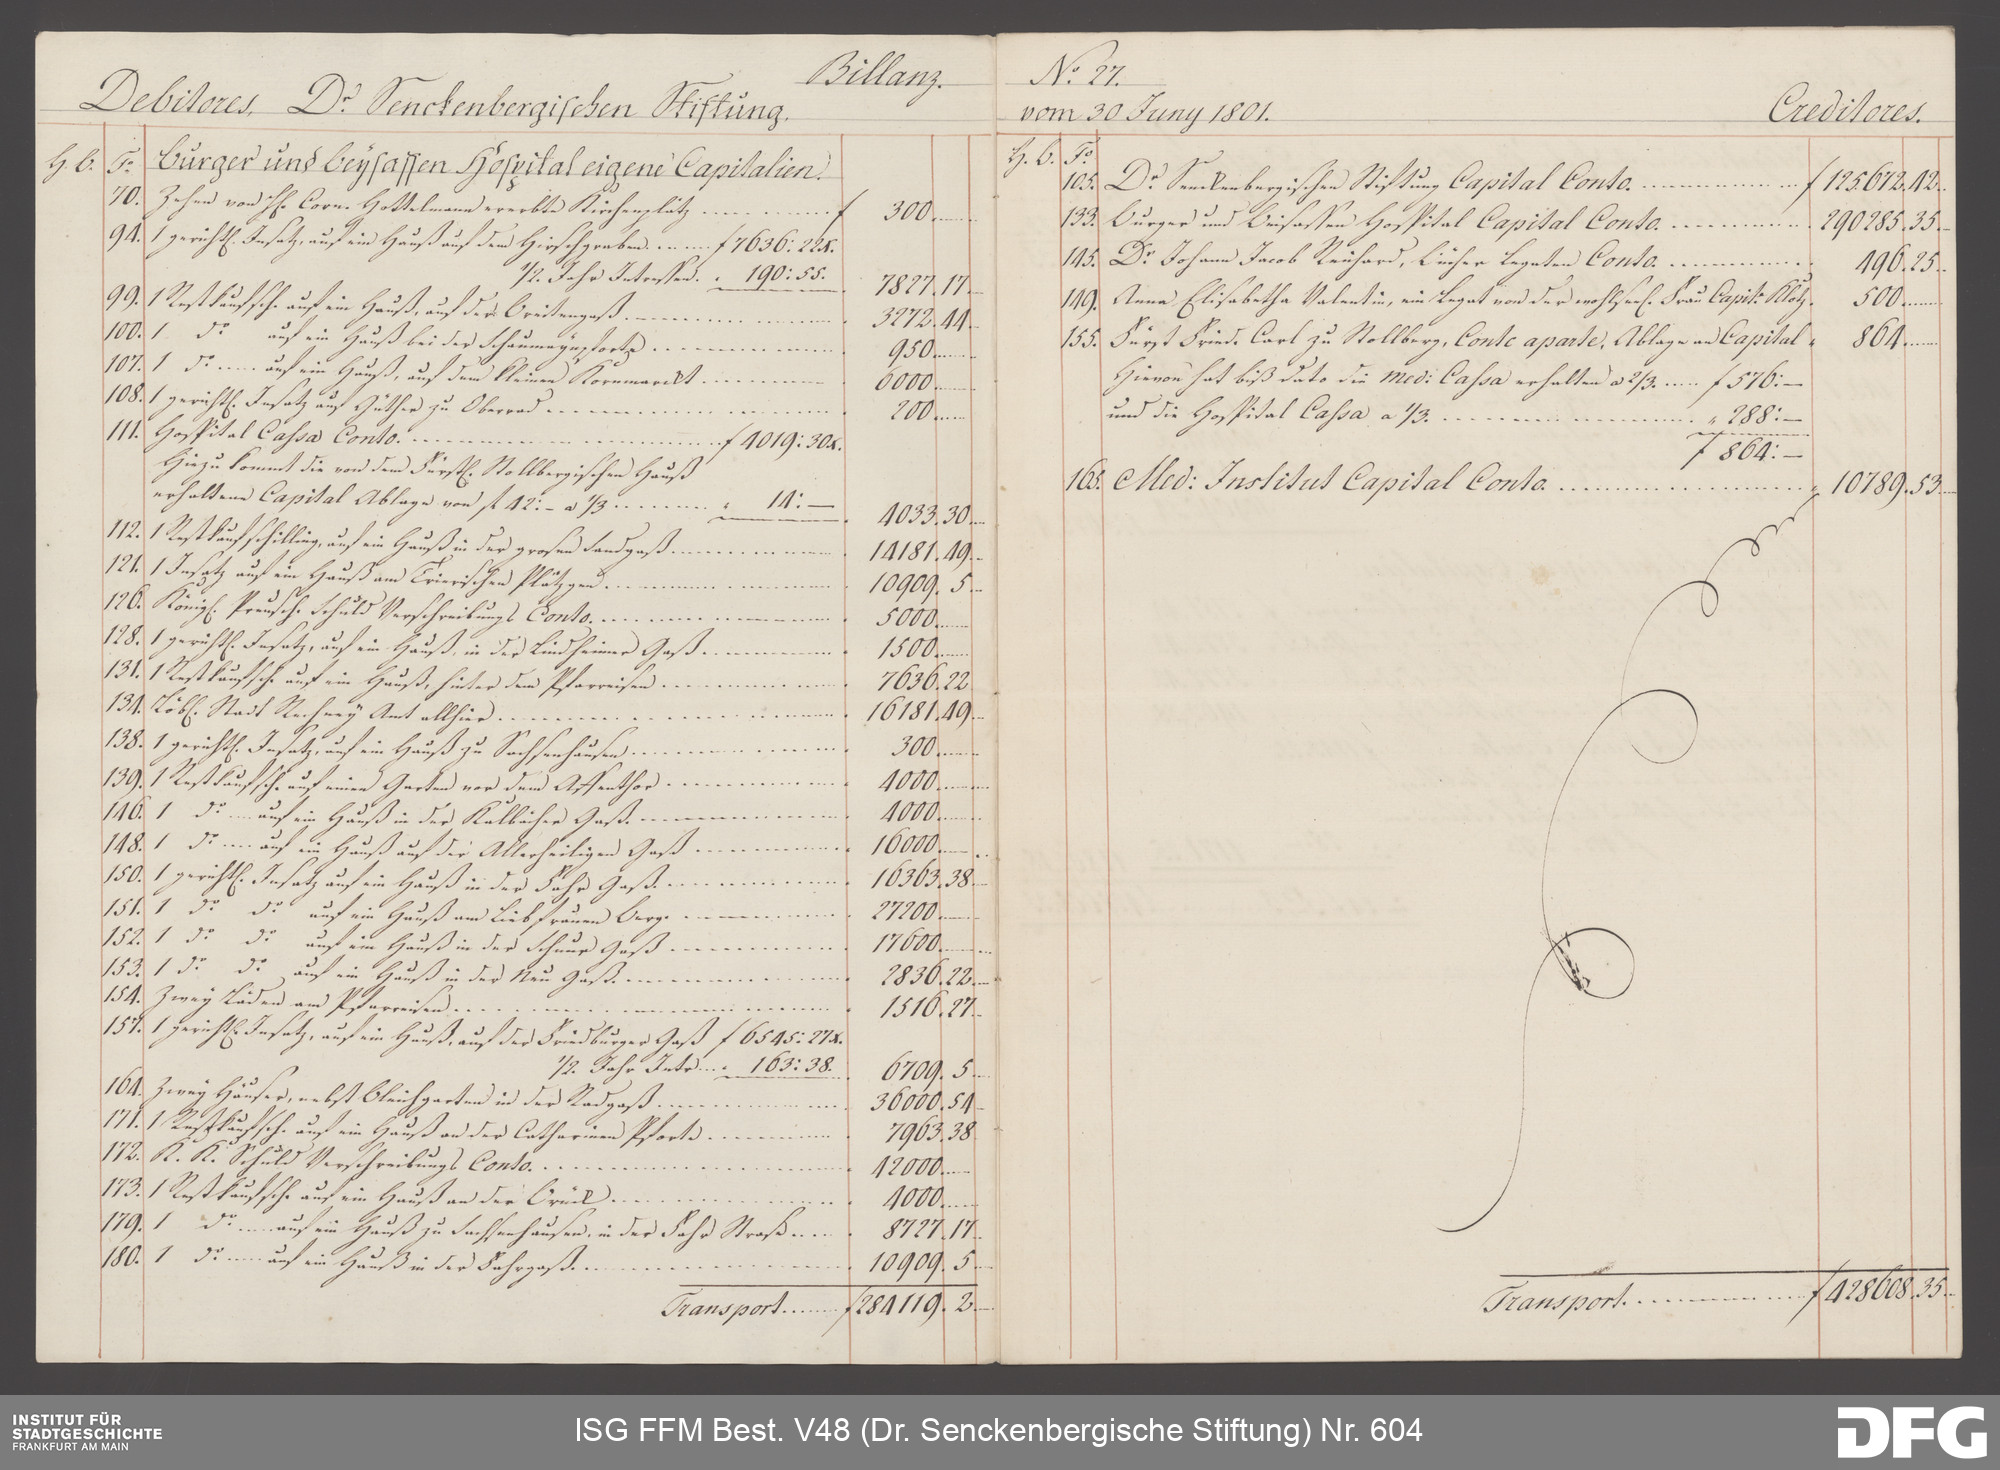 Billanz.
Debitores. Dr. Senckenbergischen Stiftung.
H. B. Fo. Burger und Beysassen Hospital eigene Capitalien.
70. Zehen von H. Corn. Hottelmann ererbte Kirchenplätz f 300
94. 1 gerichtl. Insatz, auf ein Hauß auf dem Hirschgraben f 7636: 22x.
1/2 Jahr Intressen. „ 190: 55. 7827. 17
99. 1 Restkaufsch. auf ein Hauß, auf der Breitengaß. 3272. 44
100. 1 do auf ein Hauß bei der Schaumaynpforte 950
107. 1 do auf ein Hauß, auf dem kleinen Kornmarckt 6000
108. 1 gerichtl. Insatz auf Güther zu Oberrad 200
111. Hospital Cassa Conto. f 4019: 30x.
Hiezu kommt die von dem Fürstl. Stollbergischen Hauß
erhaltene Capital Ablage von f 42: – a 1/3 „ 14: – 4033. 30
112. 1 Restkaufschilling, auf ein Hauß in der grosen Sandgaß 14181. 49
121. 1 Insatz auf ein Hauß am Trierischen Plätzgen 10909. 5
126. Königl. Preusch. Schuld Verschreibungs Conto. 5000
128. 1 gerichtl. Insatz, auf ein Hauß, in der Lindheimer Gaß 1500
131. 1 Restkaufsch. auf ein Hauß, hinter dem Pfarreisen 7636. 22
134. Löbl. Stadt Rechney Amt allhier 16181. 49
138. 1 gerichtl. Insatz, auf ein Hauß zu Sachsenhausen 300
139. 1 Restkaufsch. auf einen Garten vor dem Affenthor 4000
146. 1 do auf ein Hauß in der Kälbächer Gaß. 4000
148. 1 do auf ein Hauß auf der Allerheiligen Gaß 16000
150. 1 gerichtl. Insatz auf ein Hauß in der Fahr Gaß. 16363. 38
151. 1 do do auf ein Hauß am Liebfrauen Berg. 27200
152. 1 do do auf ein Hauß in der Schnur Gaß 17600
153. 1 do do auf ein Hauß in der Neu Gaß. 2836. 22
154. Zwey Läden am Pfarreisen 1516. 27
157. 1 gerichtl. Insatz, auf ein Hauß, auf der Friedburger Gaß f 6545: 27x.
1/2 Jahr Intr. „ 163: 38. 6709. 5
164. Zwey Häuser, nebst Bleichgarten in der Radgaß 36000. 54
171. 1 Restkaufsch. auf ein Hauß an der Catharinen Pforte 7963. 38
172. K. K. Schuld Verschreibungs Conto. 42000
173. 1 Restkaufsch. auf ein Hauß an der Brück 4000
179. 1 do auf ein Hauß zu Sachsenhausen, in der Fahr Straß 8727. 17
180. 1 do auf ein Hauß in der Fahrgaß. 10909. 5
Transport f 284119. 2
No. 27.
vom 30 Juny 1801. Creditores.
H. B. Fo.
105. Dr. Senckenbergischen Stiftung Capital Conto. f 125672. 42
133. Burger und Beisassen Hospital Capital Conto. 290285. 35
145. Dr. Johann Jacob Reichard, Bücher Legaten Conto. 496. 25
149. Anna Elisabetha Valentin, ein Legat von der wohlseel. Frau Capit: Klotz. 500
155. Fürst Fried. Carl zu Stollberg, Conto aparte, Ablage an Capital 864
Hievon hat biß dato die Med: Cassa erhalten a 2/3. f 576: –
und die Hospital Cassa a 1/3. „ 288: –
f 864: –
165. Med: Institut Capital Conto. 10789. 53
Transport. f 428608. 35
INSTITUT FÜR
STADTGESCHICHTE
FRANKFURT AM MAIN
ISG FFM Best. V48 (Dr. Senckenbergische Stiftung) Nr. 604
DFG